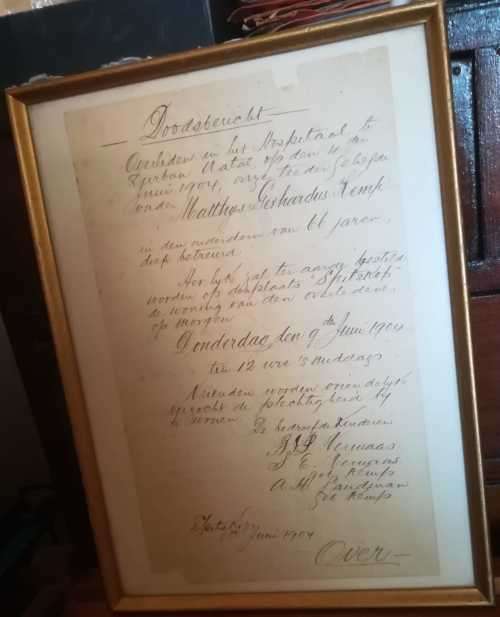 Doodsbericht
Overleden in het Hospitaal te
Durban Natal op den
Juni 1904, onze teeder geliefde
vader
Matthys Gerhardus Kemp
in den ouderdom van 66 jaren,
diep betreurd.
Het lyk zal ter aarde besteld
worden op de plaats "Spitzkop"
de woning van den overledene,
op morgen
Donderdag, den 9de Juni 1904
ten 12 ure 's middags
Vrienden worden vriendelyk
verzocht de plechtigheid by
te wonen
De bedroefde Kinderen
Vermaas
S. E.
geb Kemp
A. M. Landman
geb Kemp
Spitzkop
Juni 1904
Over